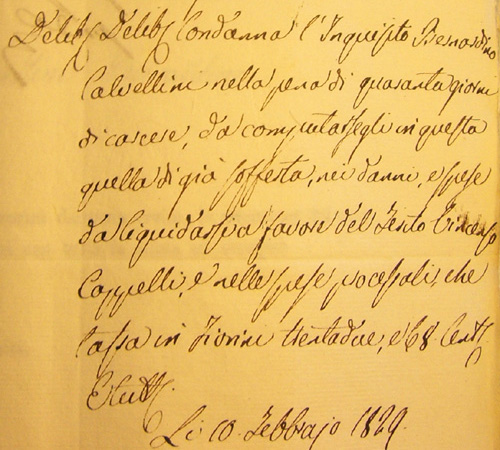 Delib. Delib. Condanna l'Inquisito Bernardino
Calvellini nella pena di quaranta giorni
di carcere, da computarsegli in questa
quella di già sofferta, nei danni, e spese
da liquidarsi a favore del Ferito Vincenzo
Cappelli, e nelle spese processali, che
tassa in Fiorini trentadue, e 68 Cent.
E tutt.
Li 10 Febbrajo 1829.